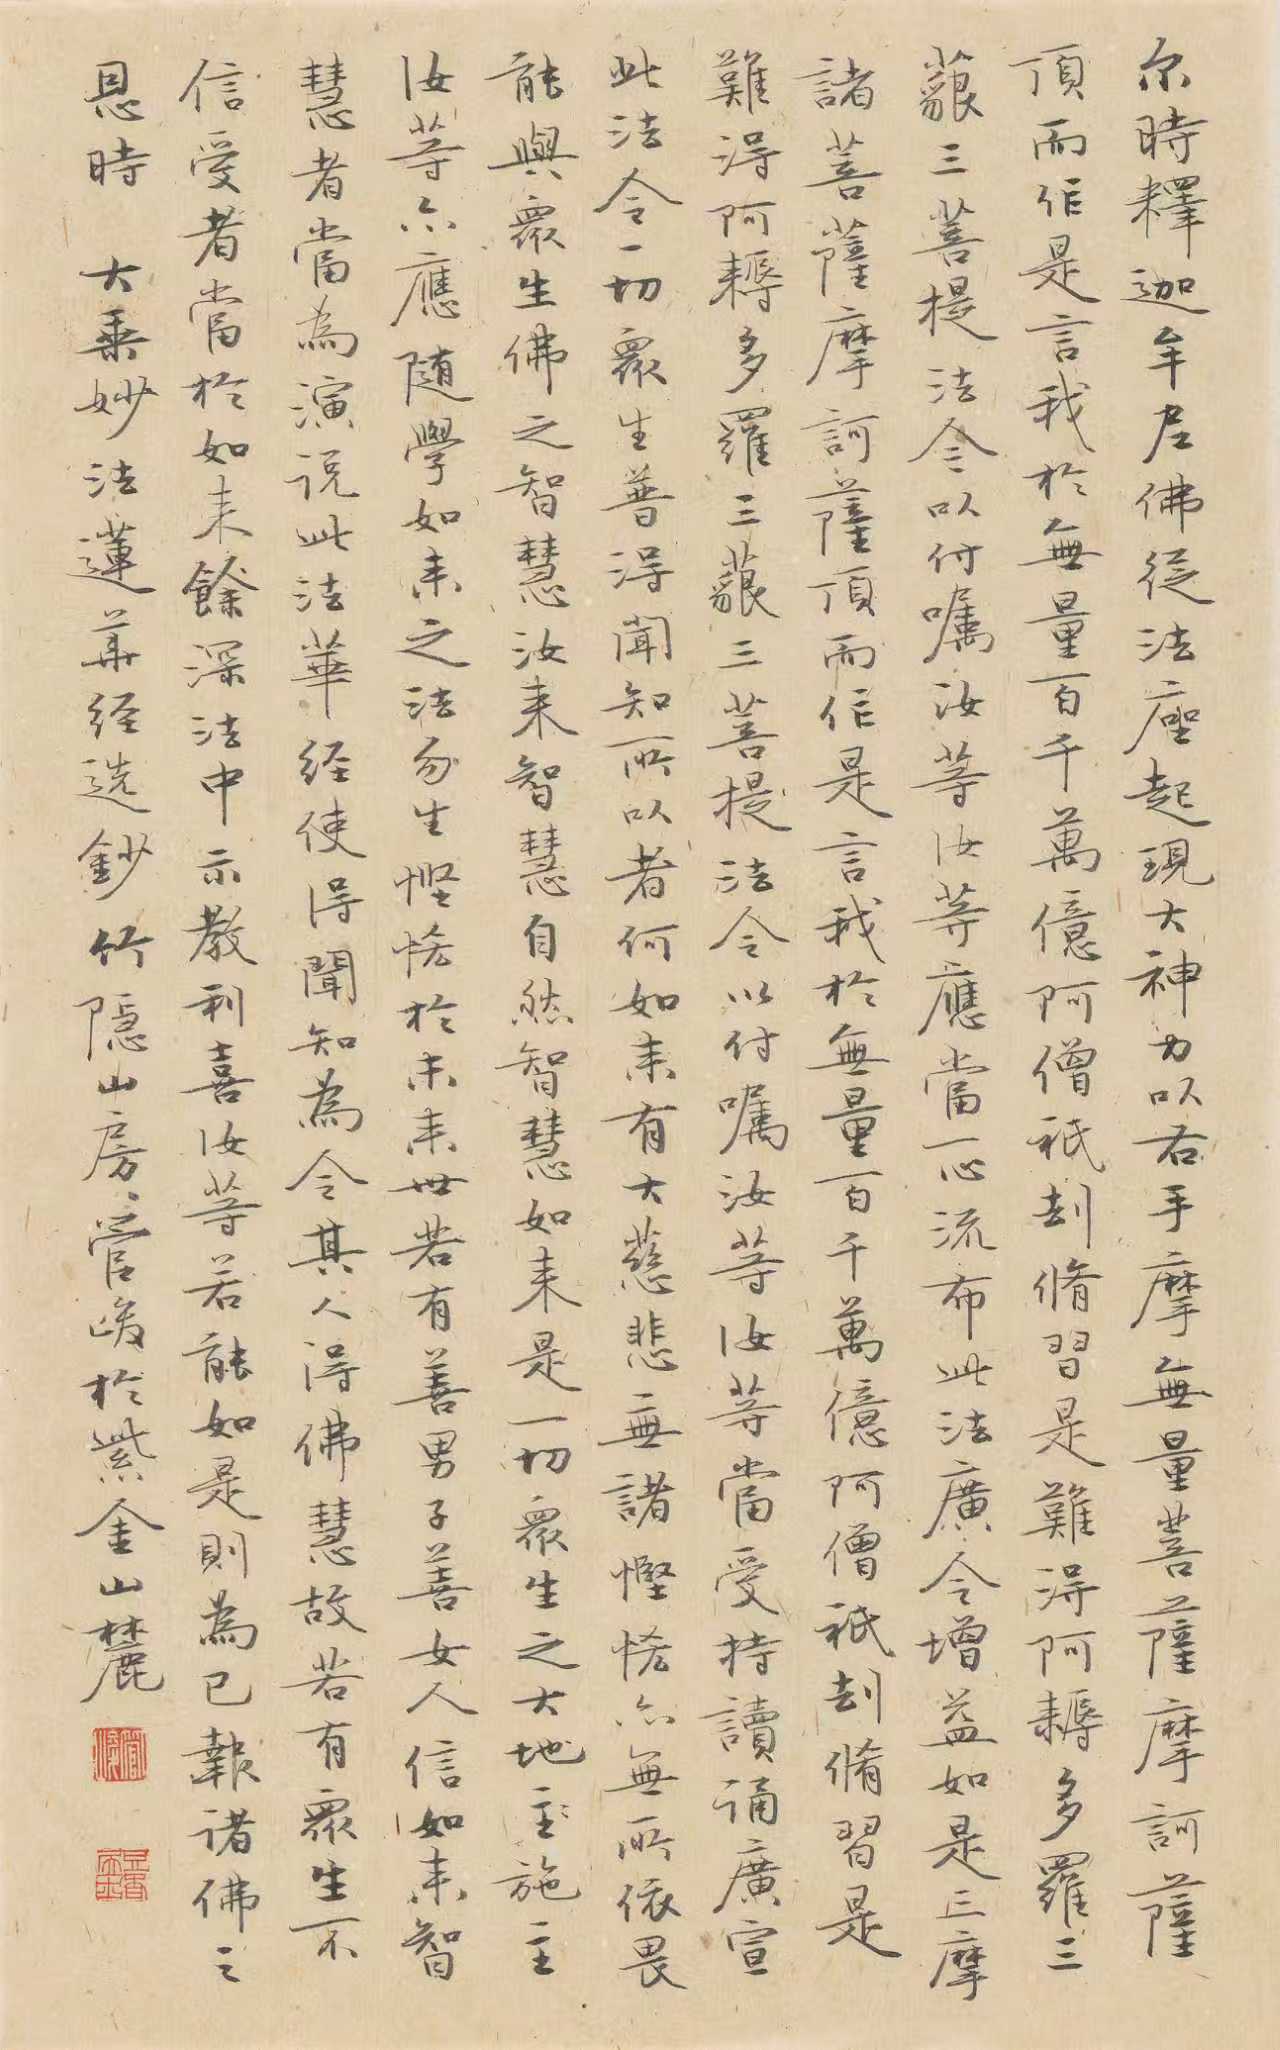 尔時釋迦牟尼佛從法座起現大神力以右手摩無量菩薩摩訶薩
頂而作是言我於無量百千萬億阿僧祇劫脩習是難得阿耨多羅三
藐三菩提法今以付嘱汝等汝等應當一心流布此法廣令增益如是三摩
諸菩薩摩訶薩頂而作是言我於無量百千萬億阿僧祇劫脩習是
難得阿耨多羅三藐三菩提法今以付嘱汝等汝等當受持讀誦廣宣
此法令一切衆生普得聞知所以者何如来有大慈悲無諸慳悋亦無所依畏
能與衆生佛之智慧汝来智慧自然智慧如来是一切衆生之大地主施主
汝等亦應随學如来之法勿生慳悋於未来世若有善男子善女人信如来智
慧者當為演说此法華经使得聞知為令其人得佛慧故若有衆生不
信受者當於如来餘深法中示教利喜汝等若能如是則為已報诸佛之
恩時 大乘妙法蓮華经选鈔竹隐山房管峻於紫金山麓